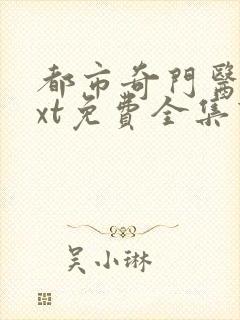 都市奇門醫
xt免費全集
吴小琳